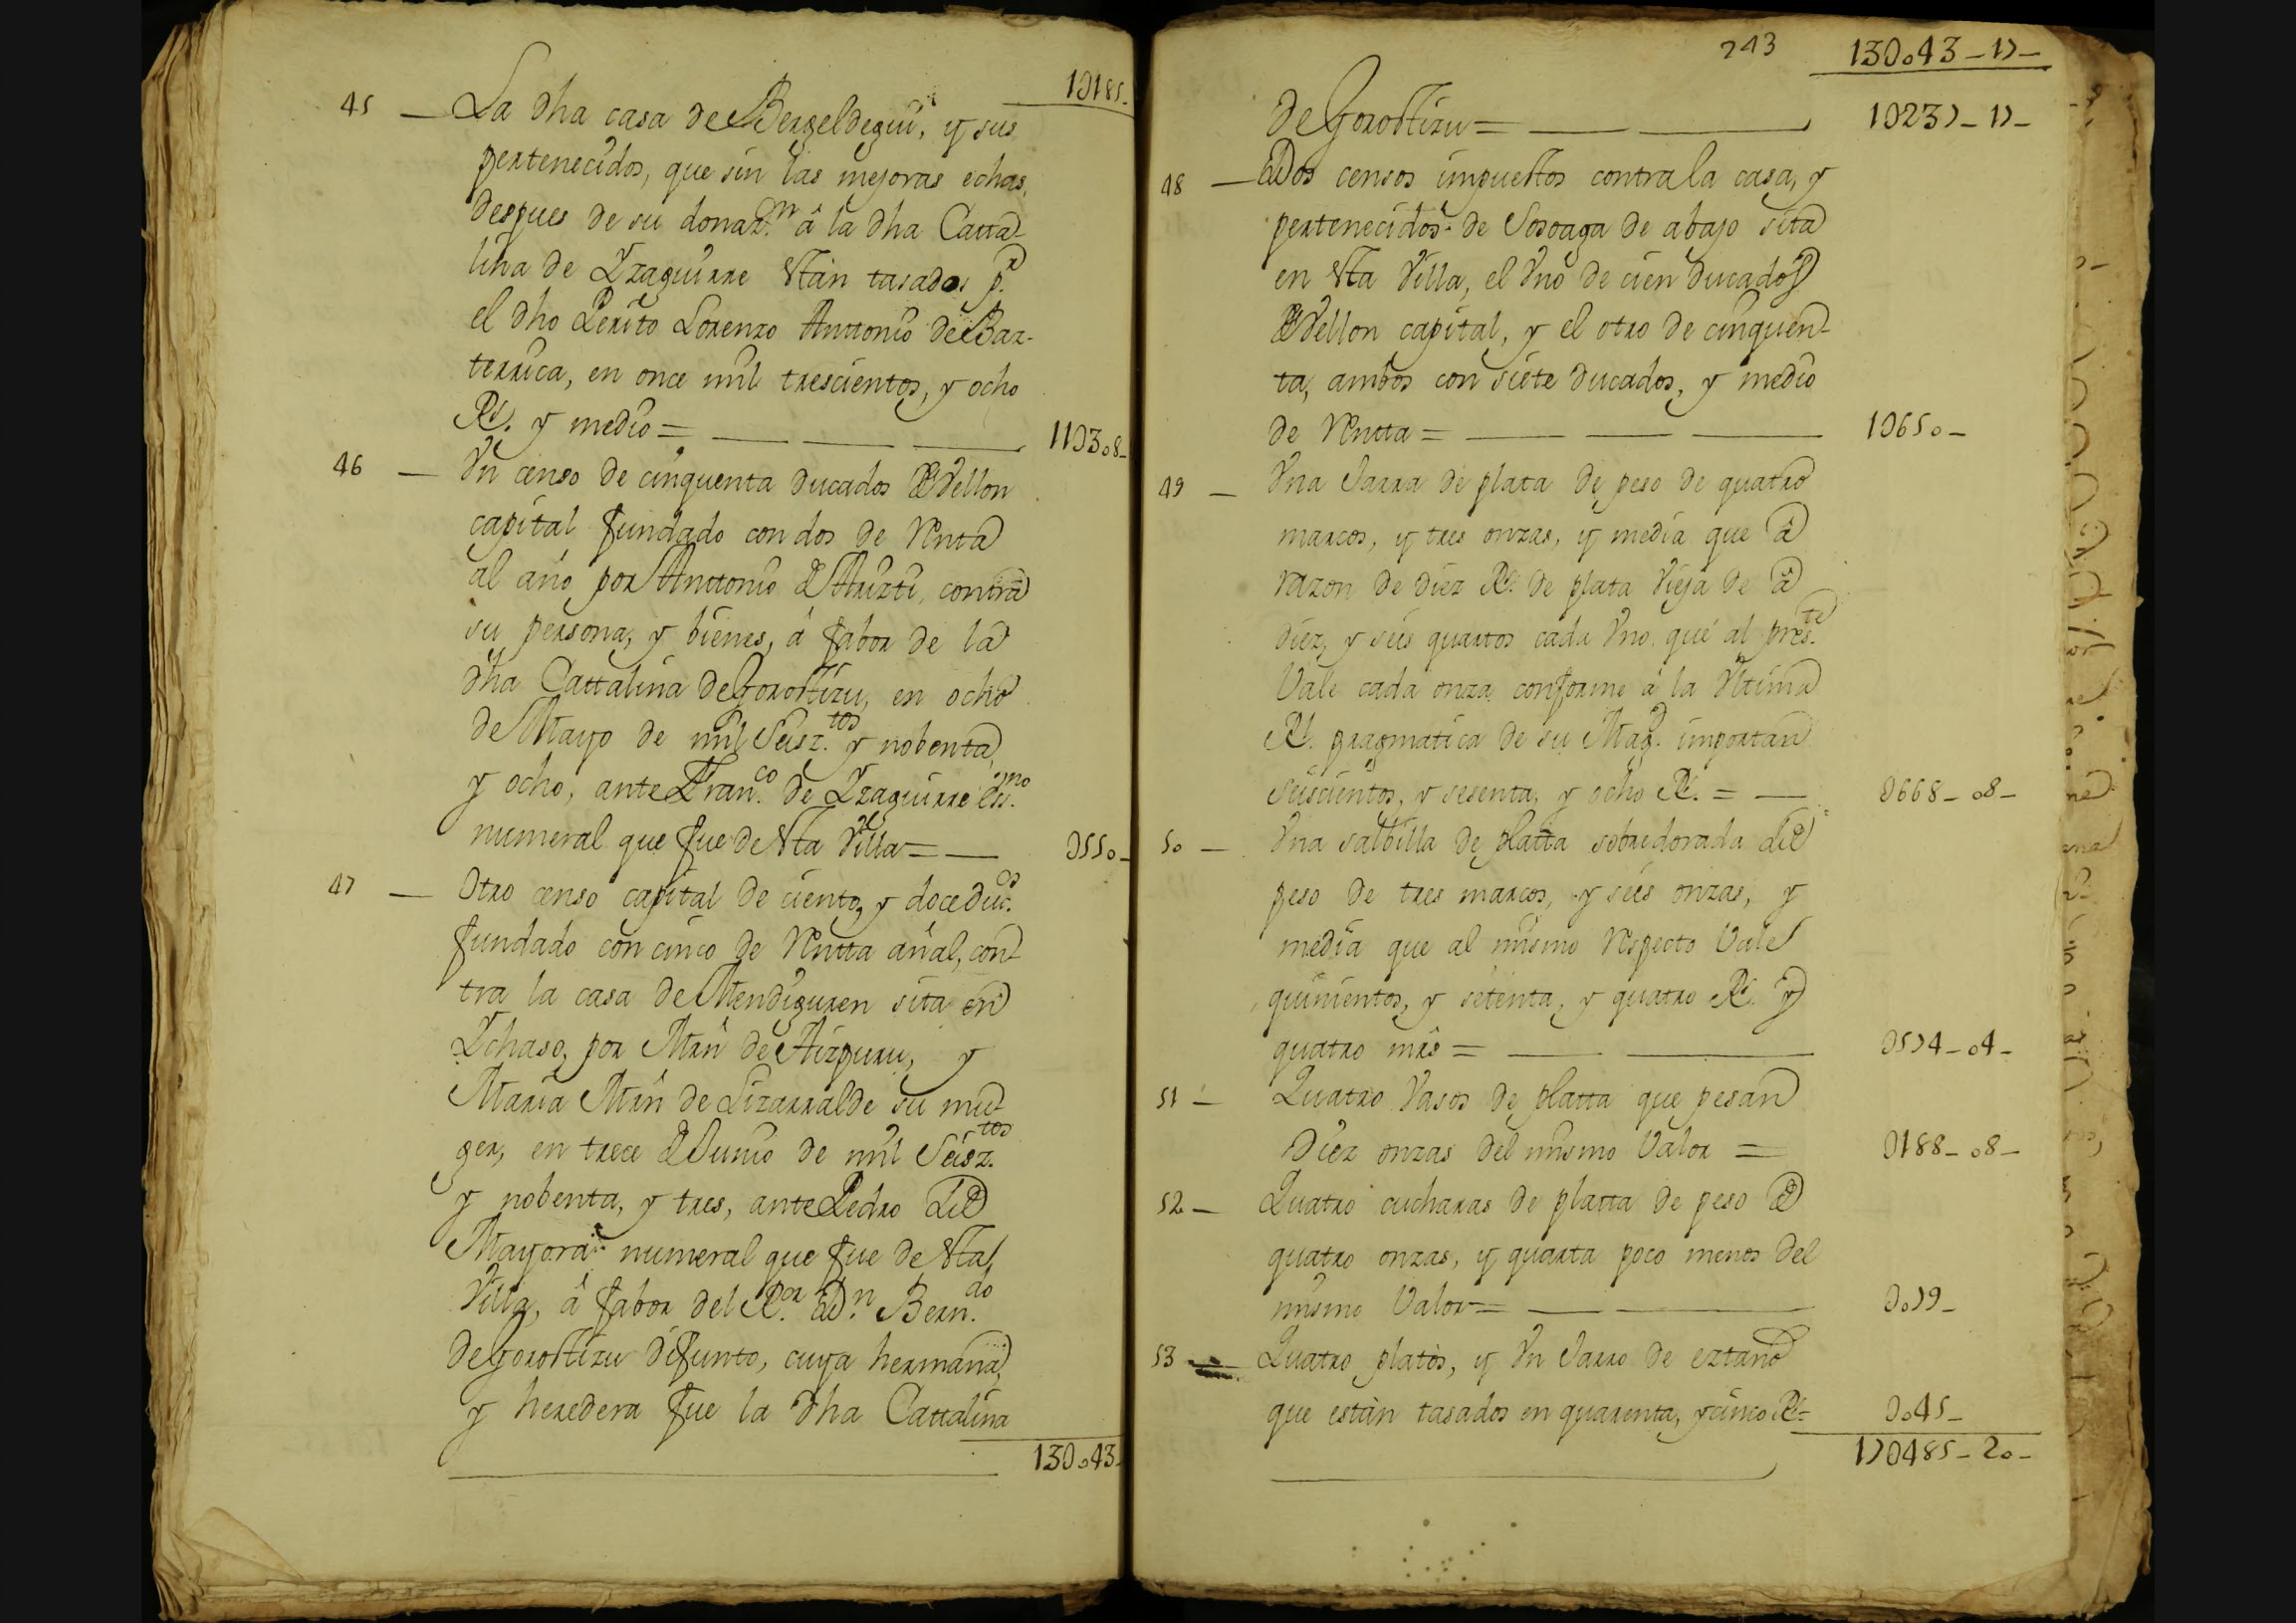 1Ɔ185-
45 — La dha casa de Bergeldegui, y sus
pertenecidos, que sin las mejoras echas
despues de su donaz.on â la dha Catta-
lina de Yzaguirre stàn tasados p.r
el dho Perito Lorenzo Anttonio de Bar-
terrica, en once mil trescientos, y ocho
Rs. y medio = — — — 11Ɔ3o8-
46 — Vn censo de cinquenta ducados de Vellon
capital fundado con dos de Renta
al año por Anttonio de Aruzti, contra
su persona, y bienes, á fabor de la
dha Cattalina de Gorostizu, en ocho
de Mayo de mil Seisz.tos y nobenta,
y ocho, ante Fran.co de Yzaguirre ess.no
numeral que fue de sta Villa = — Ɔ55o-
47 — Otro censo capital de ciento, y doce duc.os
fundado con cinco de Rentta añal, con-
tra la casa de Mendiguren sita en
Ychaso, por Mrn de Aizpuru, y
Maria Mrn de Lizarralde su mu-
ger, en trece de Junio de mil Seisz.tos
y nobenta, y tres, ante Pedro de
Mayora numeral que fue de sta
Villa, â fabor del R.or D.n Bern.do
de Gorostizu difunto, cuya hermana,
y heredera fue la dha Cattalina
13Ɔo43-
243
13Ɔo43-17-
de Gorostizu = — — 1Ɔ237-17-
48 — Dos censos impuestos contra la casa, y
pertenecidos de Soroaga de abajo sita
en sta Villa, el Vno de cien ducados
de Vellon capital, y el otro de cinquen-
ta, ambos con siete ducados, y medio
de Rentta = — — — 1Ɔ65o-
49 — Vna Jarra de plata de peso de quatro
marcos, y tres onzas, y media que â
razon de diez Rs. de plata Vieja de â
diez, y seis quartos cada Vno que al pres.te
Vale cada onza conforme á la Vltima
Rl. pragmatica de su Mag.d importan
seiscientos, y sesenta, y ocho Rs. = — Ɔ668-o8-
5o — Vna salbilla de platta sobredorada de
peso de tres marcos, y seis onzas, y
media que al mismo respecto Vale
quinientos, y setenta, y quatro Rs. y
quatro mrs = — — Ɔ574-o4-
51 — Quatro Vasos de platta que pesan
Diez onzas del mismo Valor = Ɔ188-o8-
52 — Quatro cucharas de platta de peso de
quatro onzas, y quarta poco menos del
mismo Valor = — — Ɔo79-
53 — Quatro platos, y Vn Jarro de eztano
que están tasados en quarenta, y cinco Rs = Ɔo45-
17Ɔ485-2o-